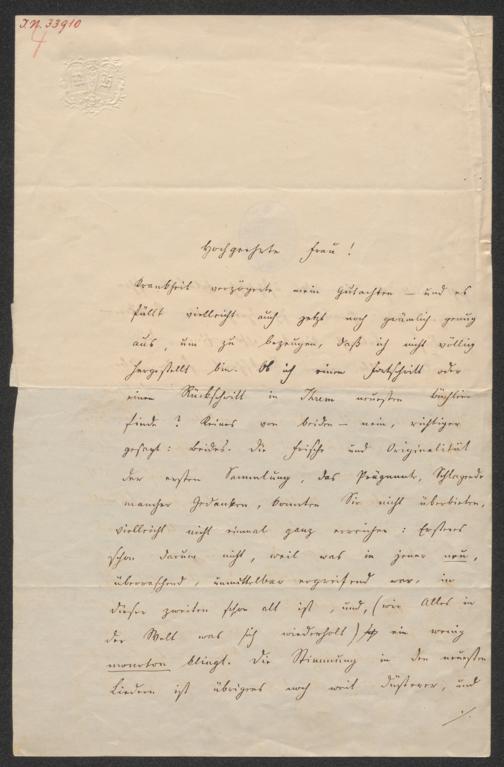 I.N. 33910
4
Hochgeehrte Frau!
Krankheit verzögerte mein Gutachten – und es
fällt vielleicht auch jetzt noch grämlich genug
aus, um zu bezeugen, daß ich nicht völlig
hergestellt bin. Ob ich einen Fortschritt oder
einen Rückschritt in Ihrem neuesten Büchlein
finde? Keines von beiden – nein, richtiger
gesagt: beides. Die Frische und Originalität
der ersten Sammlung, das Prägnante, Schlagende
mancher Gedanken, konnten Sie nicht überbieten,
vielleicht nicht einmal ganz erreichen: Ersteres
schon darum nicht, weil was in jener neu,
überraschend, unmittelbar ergreifend war, in
dieser zweiten schon alt ist, und, (wie Alles in
der Welt was sich wiederholt) ein wenig
monoton klingt. Die Stimmung in den neuesten
Liedern ist übrigens noch weit düsterer, und
./.